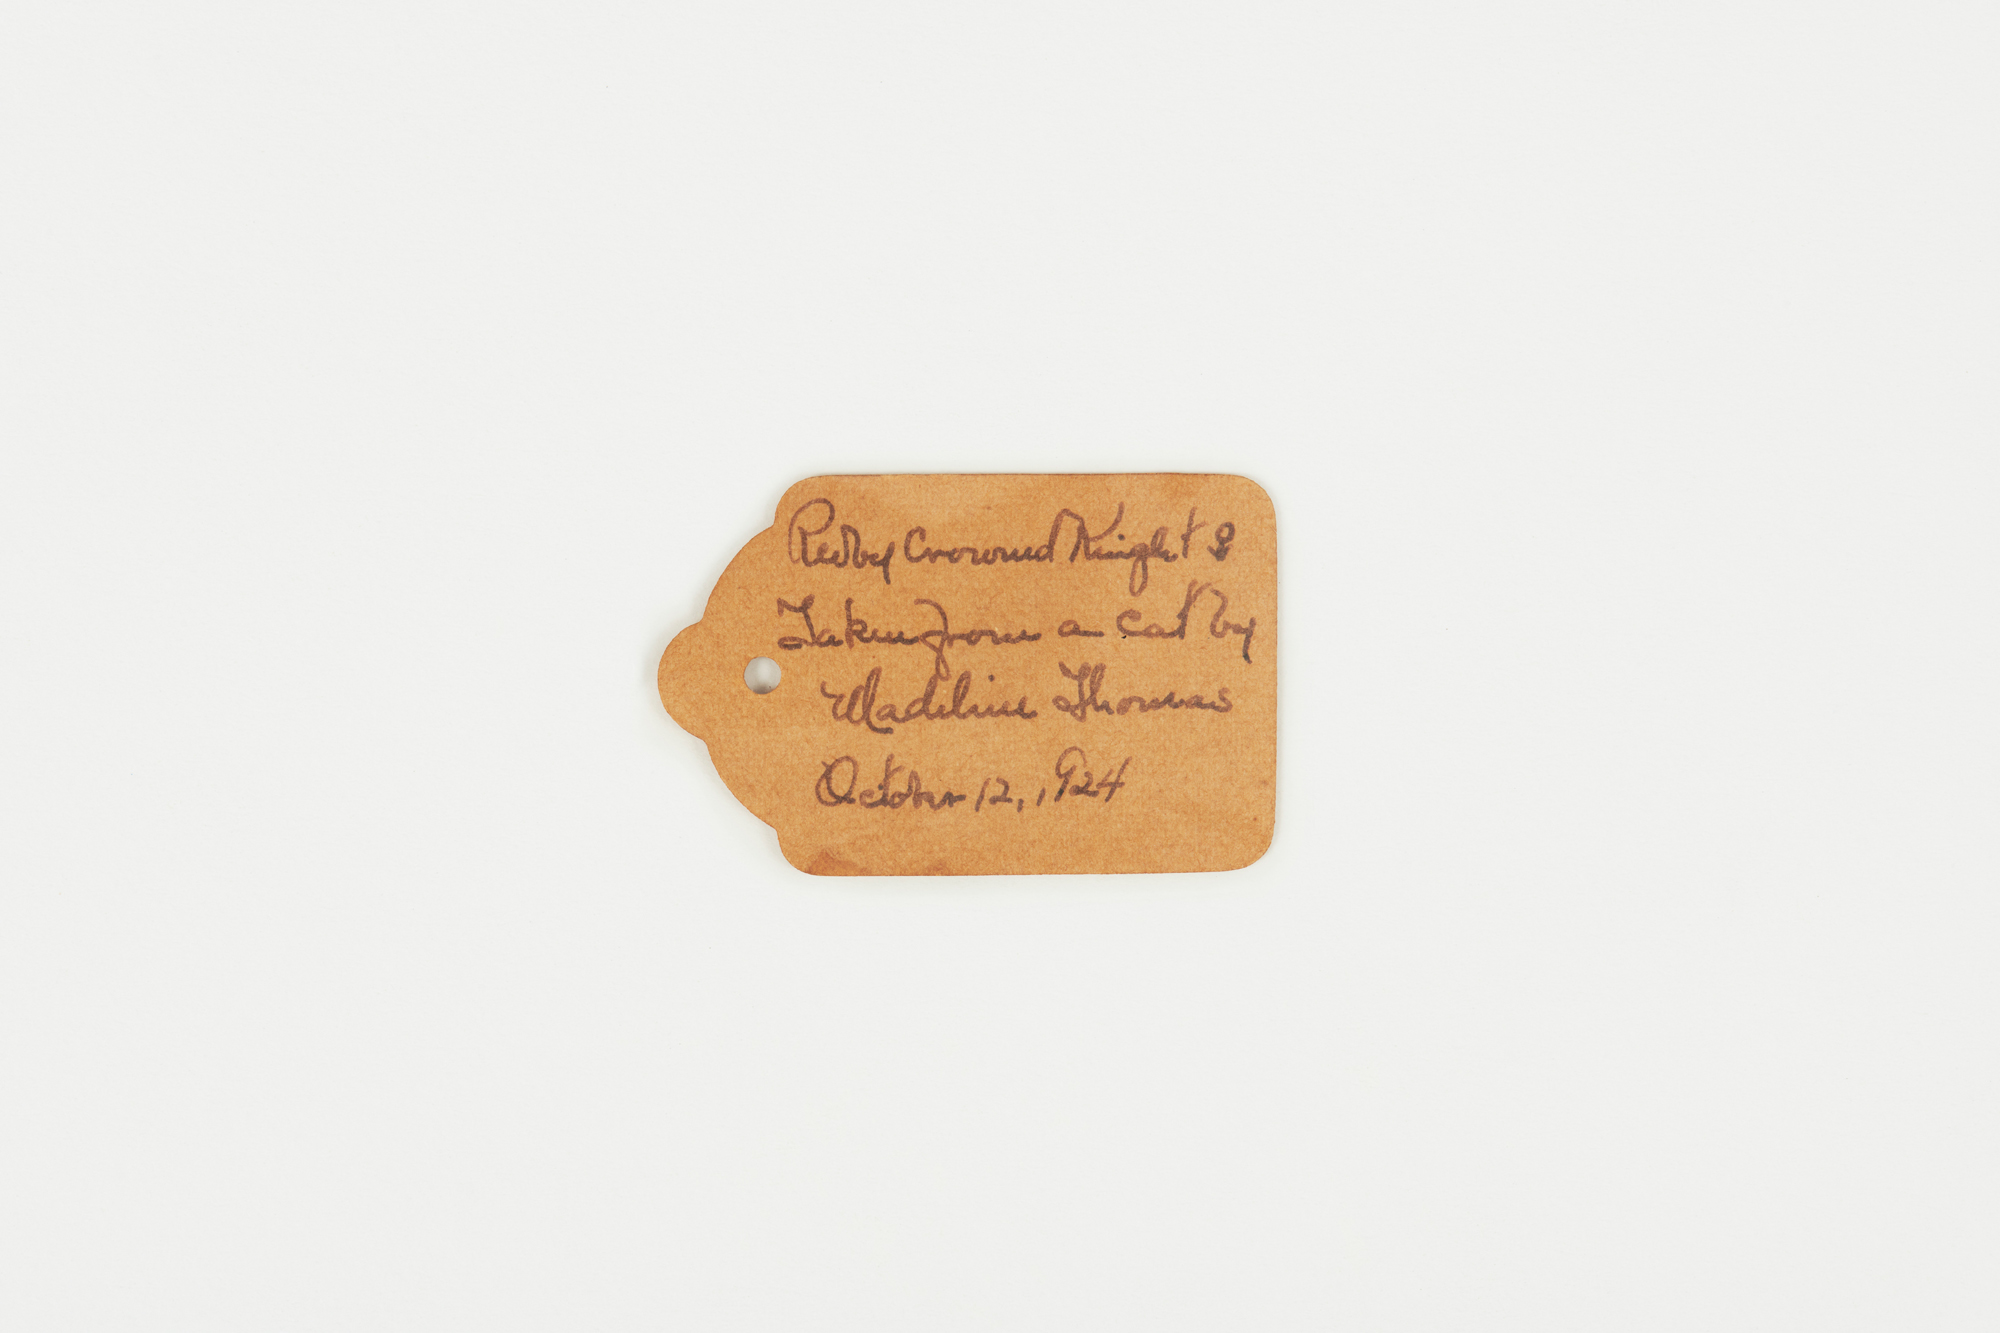 Ruby Crowned Knight ♀
Taken from a cat by
Madeline Thomas
October 12, 1924